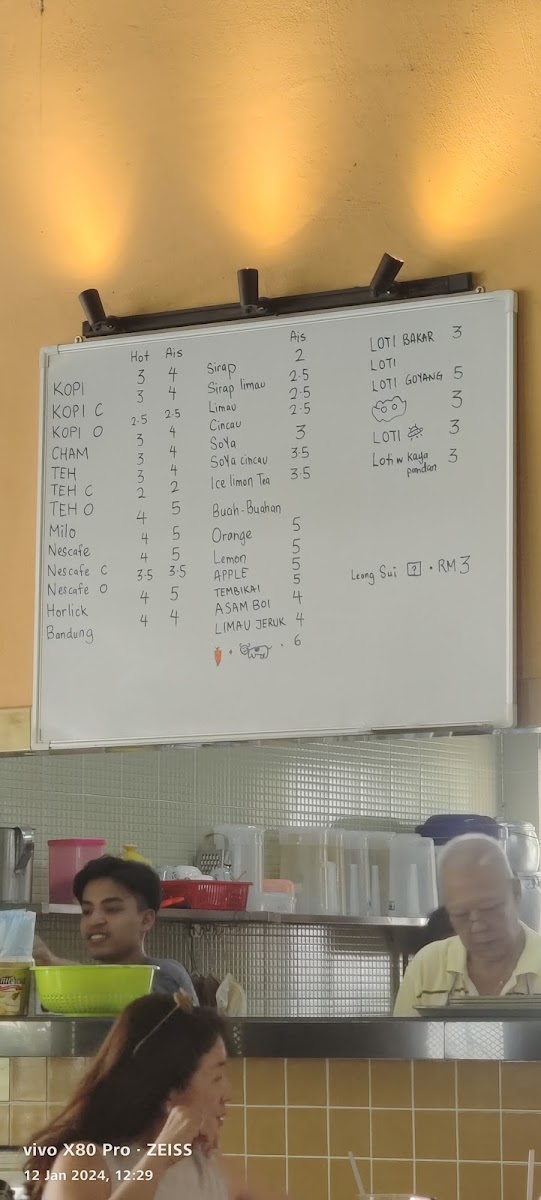 Hot Ais
KOPI 3 4
KOPI C 3 4
KOPI O 2.5 2.5
CHAM 3 4
TEH 3 4
TEH C 3 4
TEH O 2 2
Milo 4 5
Nescafe 4 5
Nescafe C 4 5
Nescafe O 3.5 3.5
Horlick 4 5
Bandung 4 4
Ais
Sirap 2
Sirap limau 2.5
Limau 2.5
Cincau 2.5
Soya 3
Soya cincau 3.5
Ice limon Tea 3.5
Buah-Buahan
Orange 5
Lemon 5
APPLE 5
TEMBIKAI 5
ASAM BOI 4
LIMAU JERUK 4
+ . 6
LOTI BAKAR 3
LOTI
LOTI GOYANG 5
3
LOTI 3
Loti w kaya 3
pandan
Leong Sui ? . RM3
vivo X80 Pro · ZEISS
12 Jan 2024, 12:29